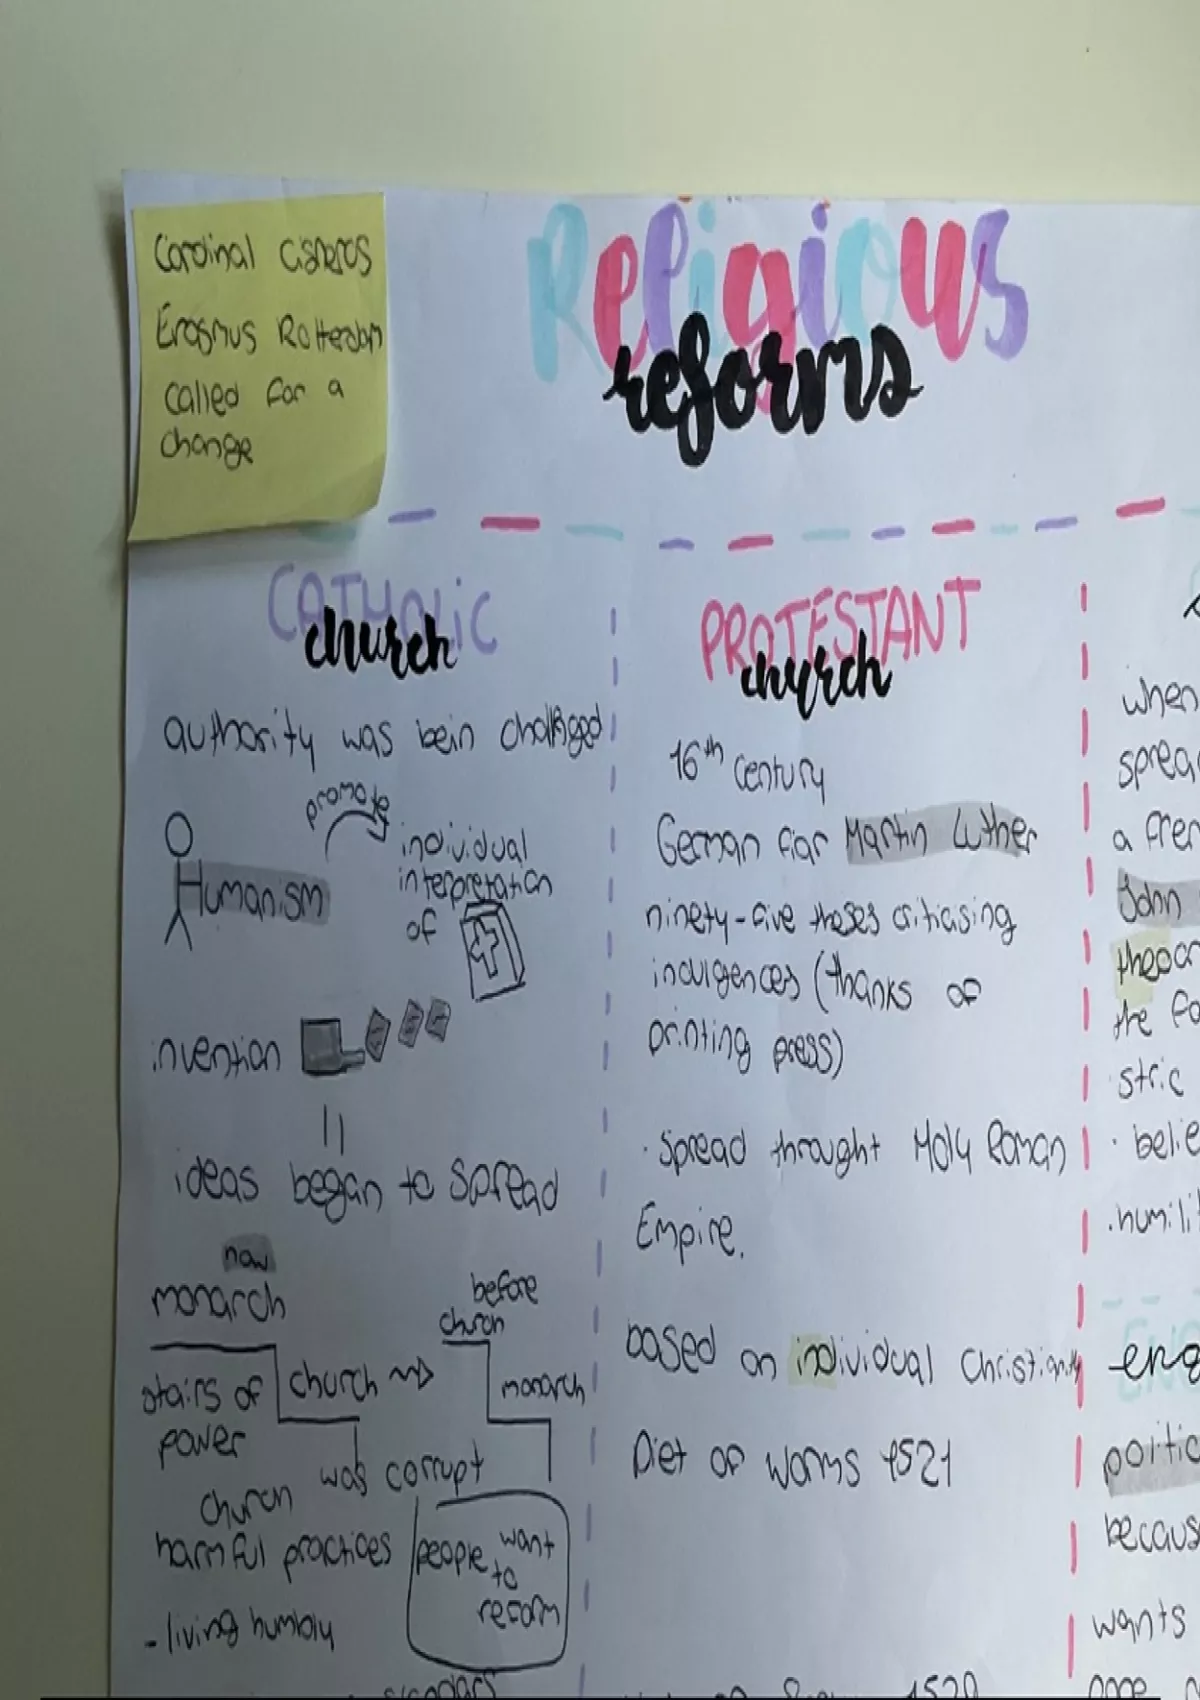 Cardinal Cisneros
Erasmus Rotterdam
called for a
change
Religious
reforms
CATHOLIC
church
authority was bein challenged
promote
individual
interpretation
of
Humanism
invention
ideas began to spread
now
monarch
before
church
stairs of
power
church
monarch
church was corrupt
harmful practices
- living humbly
people want
to
reform
PROTESTANT
church
16th century
German fiar Martin Luther
ninety-five theses criticising
indulgences (thanks of
printing press)
· Spread throught Holy Roman
Empire.
based on individual Christianity
Diet of Worms 1521
1520
when
sprea
a fren
John
the fo
stric
· belie
· humili
eng
politic
becaus
wants